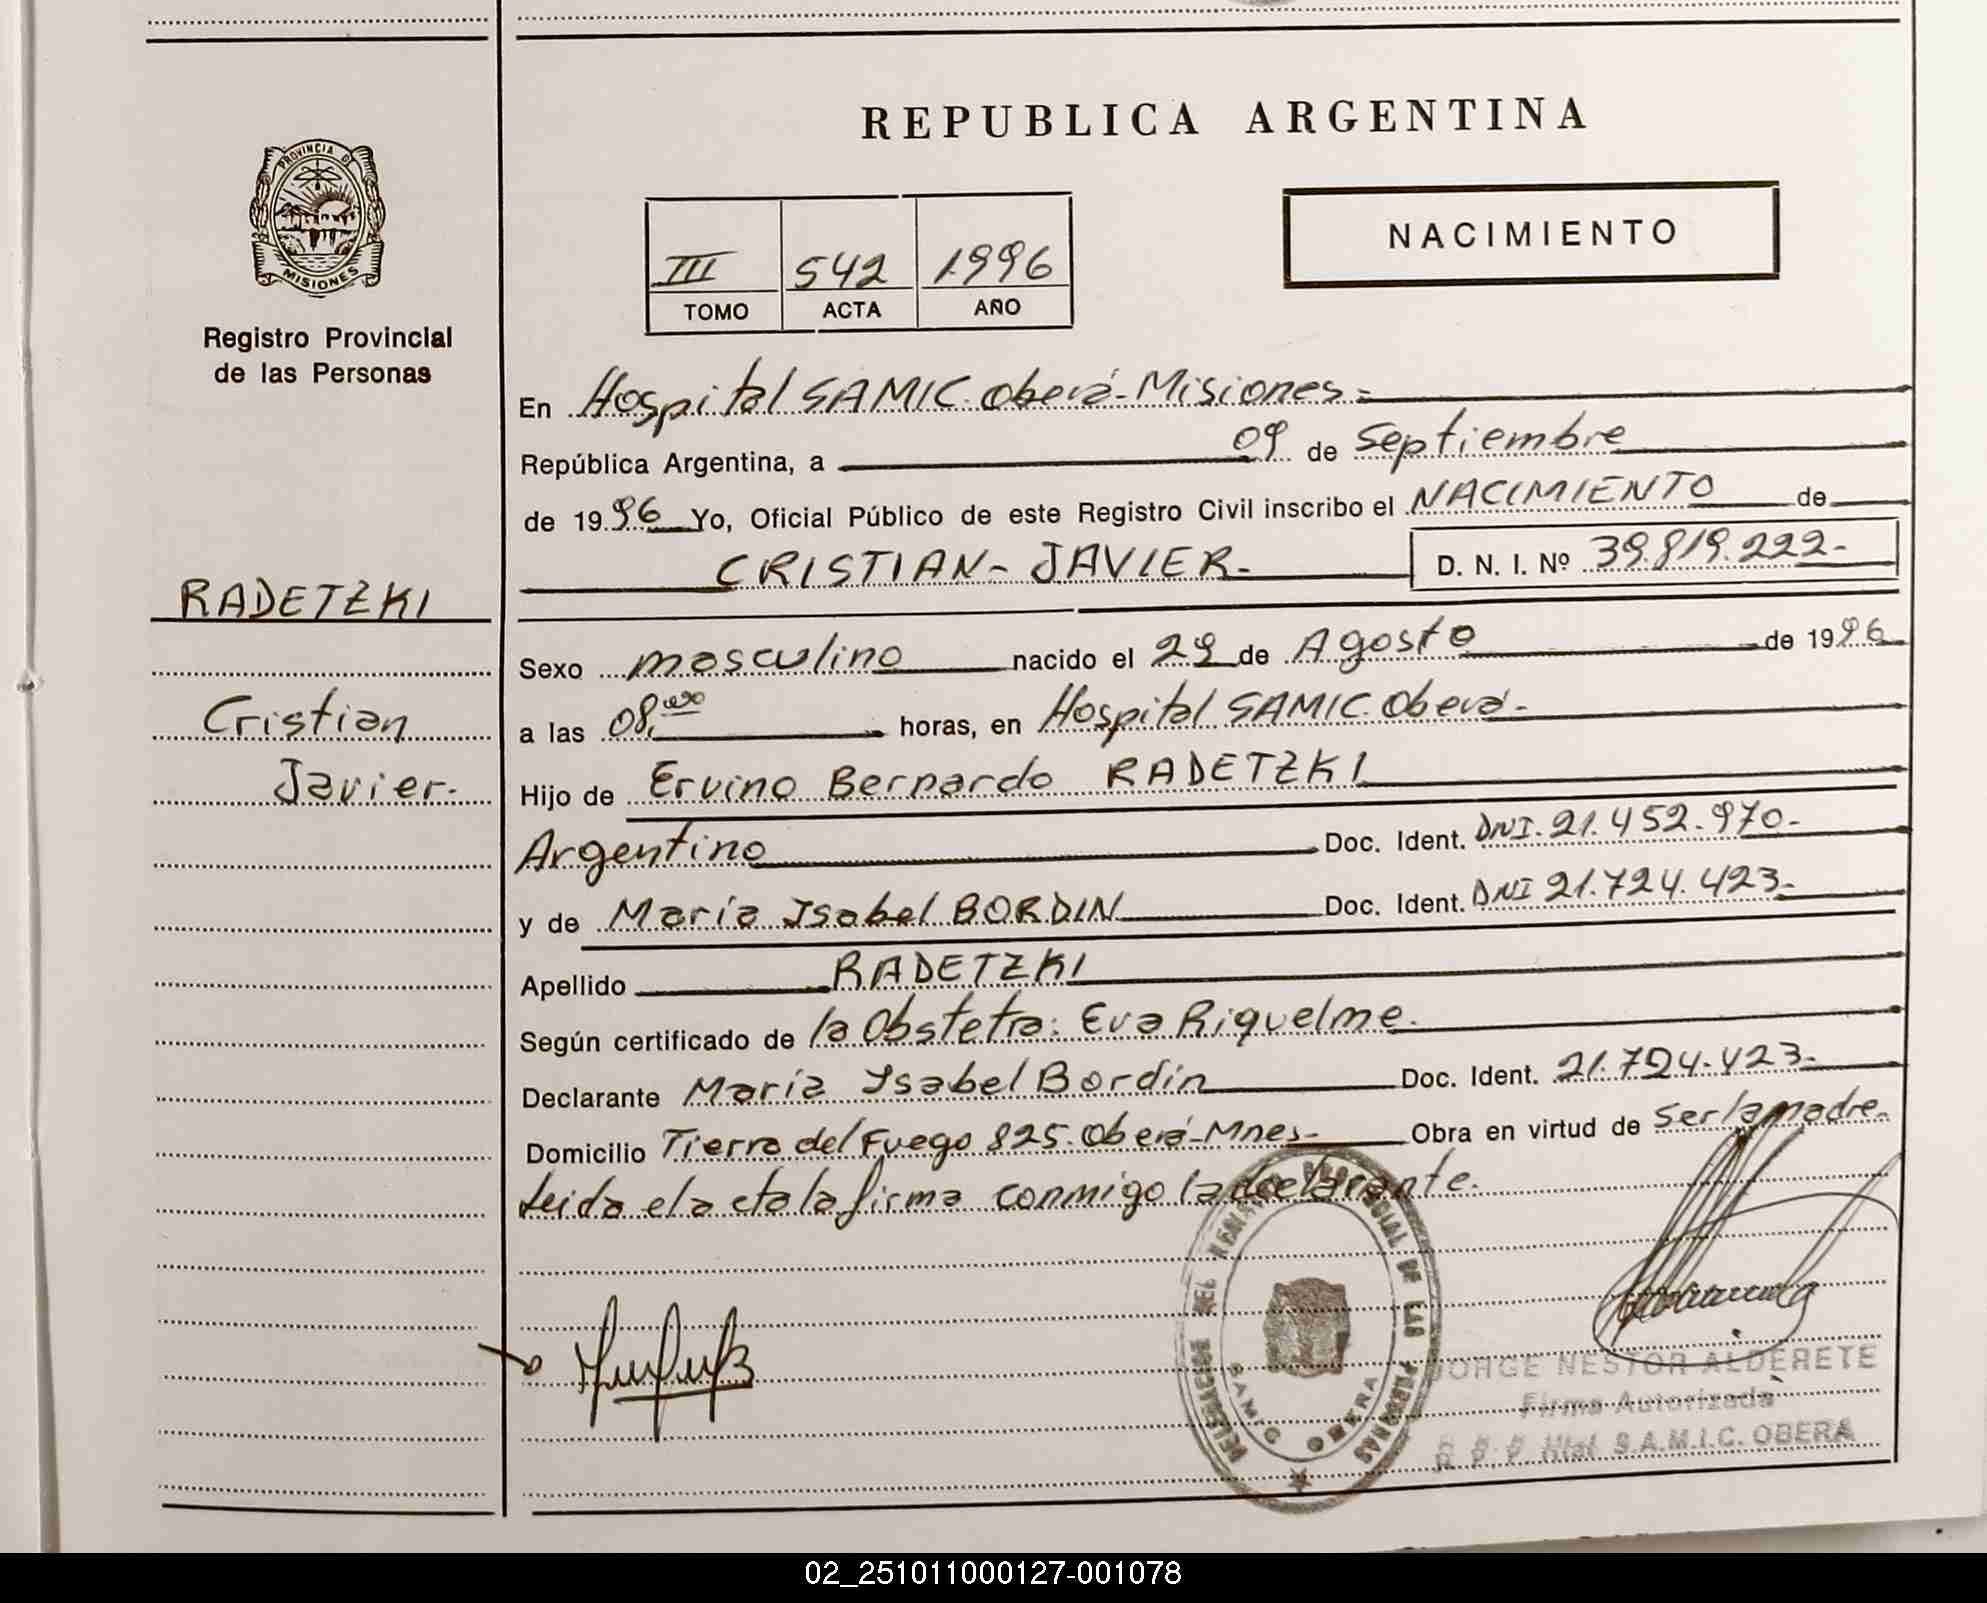 PROVINCIA DE
MISIONES
Registro Provincial
de las Personas
RADETZKI
Cristian
Javier.
REPUBLICA ARGENTINA
III 542 1996
TOMO ACTA AÑO
NACIMIENTO
En Hospital SAMIC. Oberá-Misiones=
República Argentina, a 09 de Septiembre
de 1996 Yo, Oficial Público de este Registro Civil inscribo el NACIMIENTO de
CRISTIAN- JAVIER- D. N. I. Nº 39.819.222-
Sexo masculino nacido el 29 de Agosto de 1996
a las 08,00 horas, en Hospital SAMIC. Oberá-
Hijo de Ervino Bernardo RADETZKI
Argentino Doc. Ident. DNI. 21.452.970-
y de María Isabel BORDIN Doc. Ident. DNI 21.724.423-
Apellido RADETZKI
Según certificado de la Obstetra: Eva Riquelme.
Declarante María Ysabel Bordin Doc. Ident. 21.724.423-
Domicilio Tierra del Fuego 825. Oberá-Mnes- Obra en virtud de ser la madre-
Leida el acta la firma conmigo la declarante.
DELEGACION DEL REGISTRO PROVINCIAL DE LAS PERSONAS
SAMIC OBERA
JORGE NESTOR ALDERETE
Firma Autorizada
R. P. P. Htal S.A.M.I.C. OBERA
02_251011000127-001078